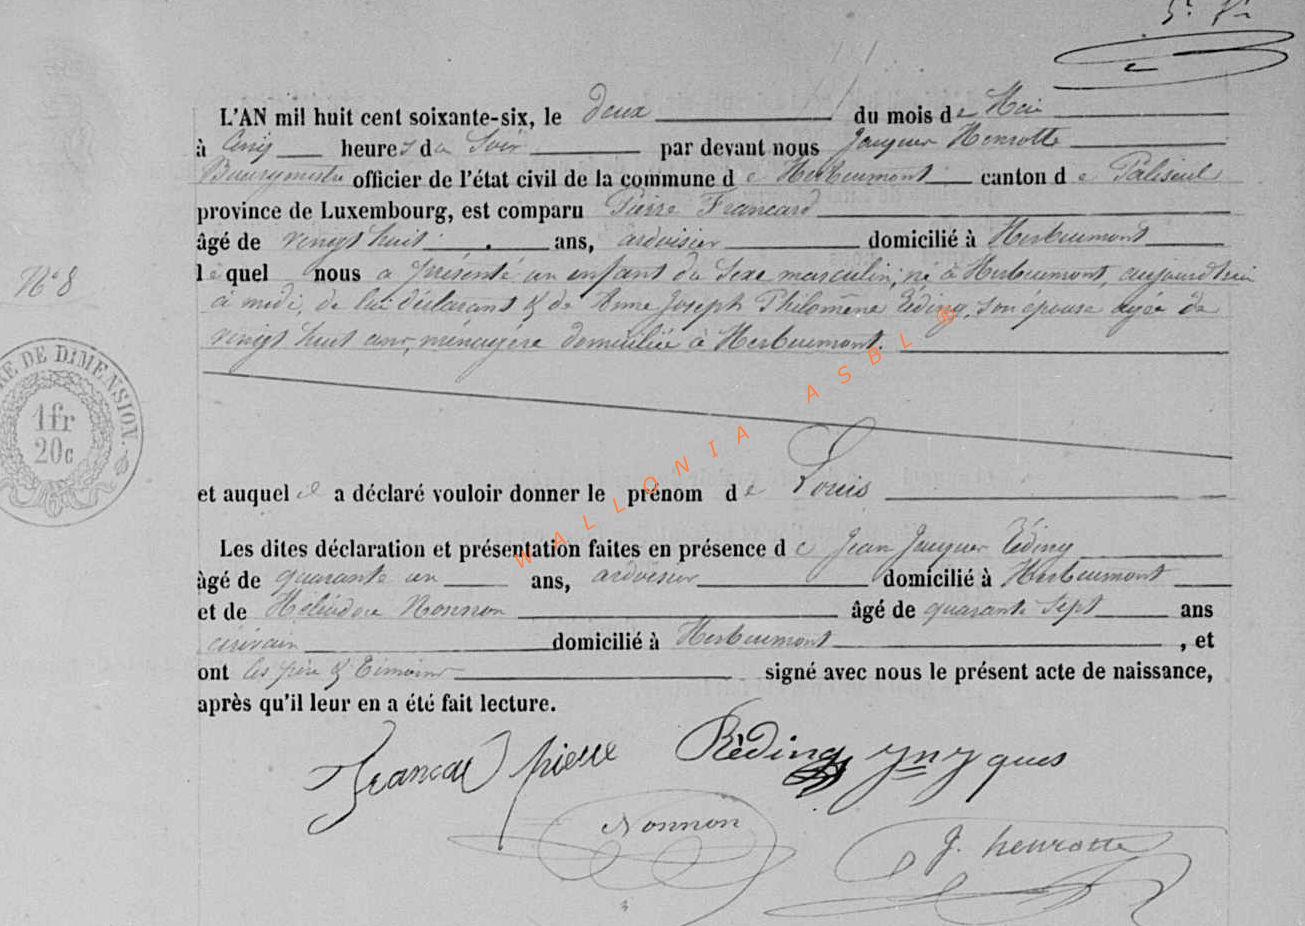 L'AN mil huit cent soixante-six, le deux du mois de Mai
à Cinq heures du Soir par devant nous Jacques Henrotte
Bourgmestre officier de l'état civil de la commune de Herbeumont canton de Paliseul
province de Luxembourg, est comparu Pierre Francard
âgé de vingt huit ans, ardoisier domicilié à Herbeumont
lequel nous a présenté un enfant du Sexe masculin, né à Herbeumont, aujourd'hui
N° 8
à midi, de lui déclarant & de Anne Joseph Philomène Réding, son épouse agée de
vingt huit ans, ménagère domiciliée à Herbeumont.
DE DIMENSION.
1fr
20c
WALLONIA ASBL ®
et auquel il a déclaré vouloir donner le prénom de Louis
Les dites déclaration et présentation faites en présence de Jean Jacques Réding
âgé de quarante un ans, ardoisier domicilié à Herbeumont
et de Héliodore Nonnon âgé de quarante Sept ans
écrivain domicilié à Herbeumont, et
ont les père & Témoins signé avec nous le présent acte de naissance,
après qu'il leur en a été fait lecture.
Francar pierre Rèding jn jques
Nonnon
J. henrotte